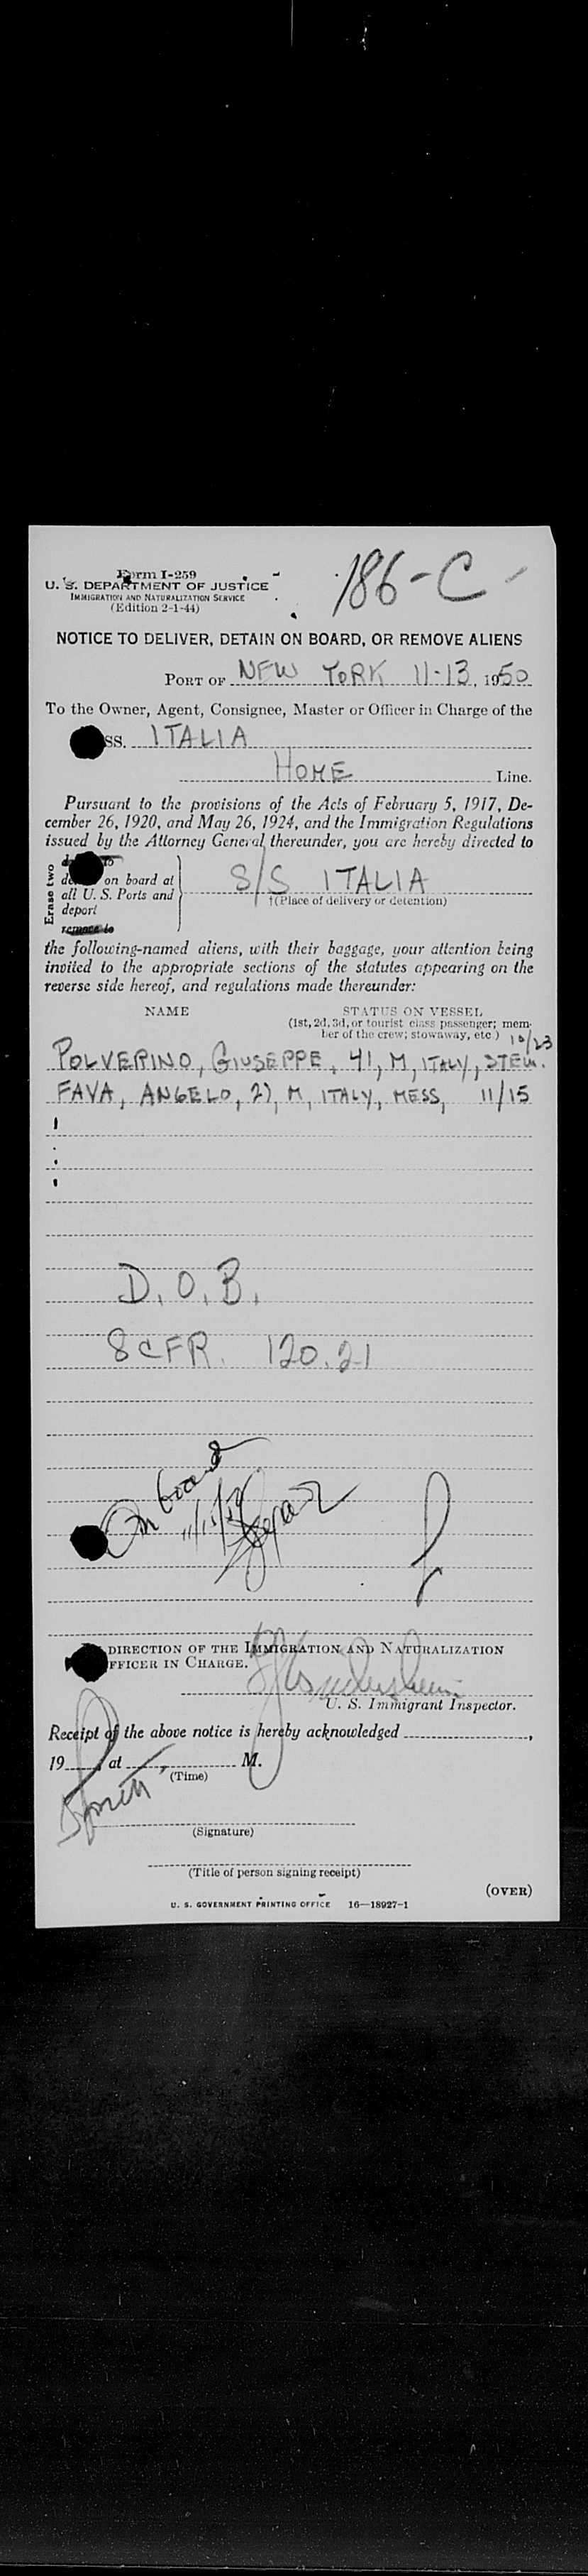 Form I-259
U. S. DEPARTMENT OF JUSTICE
IMMIGRATION AND NATURALIZATION SERVICE
(Edition 2-1-44)
186-C
NOTICE TO DELIVER, DETAIN ON BOARD, OR REMOVE ALIENS
PORT OF NEW YORK 11-13, 1950
To the Owner, Agent, Consignee, Master or Officer in Charge of the
SS. ITALIA
HOME Line.
Pursuant to the provisions of the Acts of February 5, 1917, De-
cember 26, 1920, and May 26, 1924, and the Immigration Regulations
issued by the Attorney General thereunder, you are hereby directed to
Erase two
on board at
all U. S. Ports and
deport
remove to
S/S ITALIA
†(Place of delivery or detention)
the following-named aliens, with their baggage, your attention being
invited to the appropriate sections of the statutes appearing on the
reverse side hereof, and regulations made thereunder:
NAME
STATUS ON VESSEL
(1st, 2d, 3d, or tourist class passenger; mem-
ber of the crew; stowaway, etc.)
POLVERINO, GIUSEPPE, 41, M, ITALY, STEW.
FAVA, ANGELO, 27, M, ITALY, MESS, 11/15
D.O.B.
8 CFR. 120.21
On board
DIRECTION OF THE IMMIGRATION AND NATURALIZATION
FFICER IN CHARGE.
U. S. Immigrant Inspector.
Receipt of the above notice is hereby acknowledged
19 at M.
(Time)
(Signature)
(Title of person signing receipt)
(OVER)
U. S. GOVERNMENT PRINTING OFFICE 16—18927-1